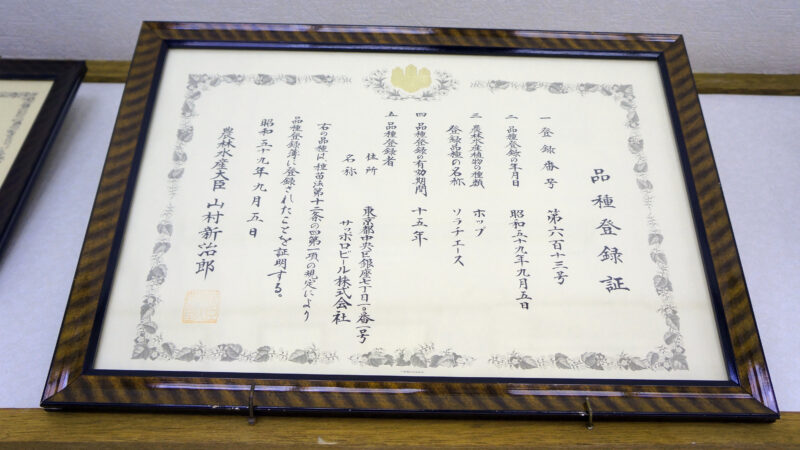 品種登録証
一 登録番号 第六百十三号
二 品種登録の年月日 昭和五十九年九月五日
三 農林水産植物の種類 ホップ
登録品種の名称 ソラチエース
四 品種登録の有効期間 十五年
五 品種登録者
住所 東京都中央区銀座七丁目一〇番一号
名称 サッポロビール株式会社
右の品種は、種苗法第十二条の四第一項の規定により
品種登録簿に登録されたことを証明する。
昭和五十九年九月五日
農林水産大臣 山村新治郎